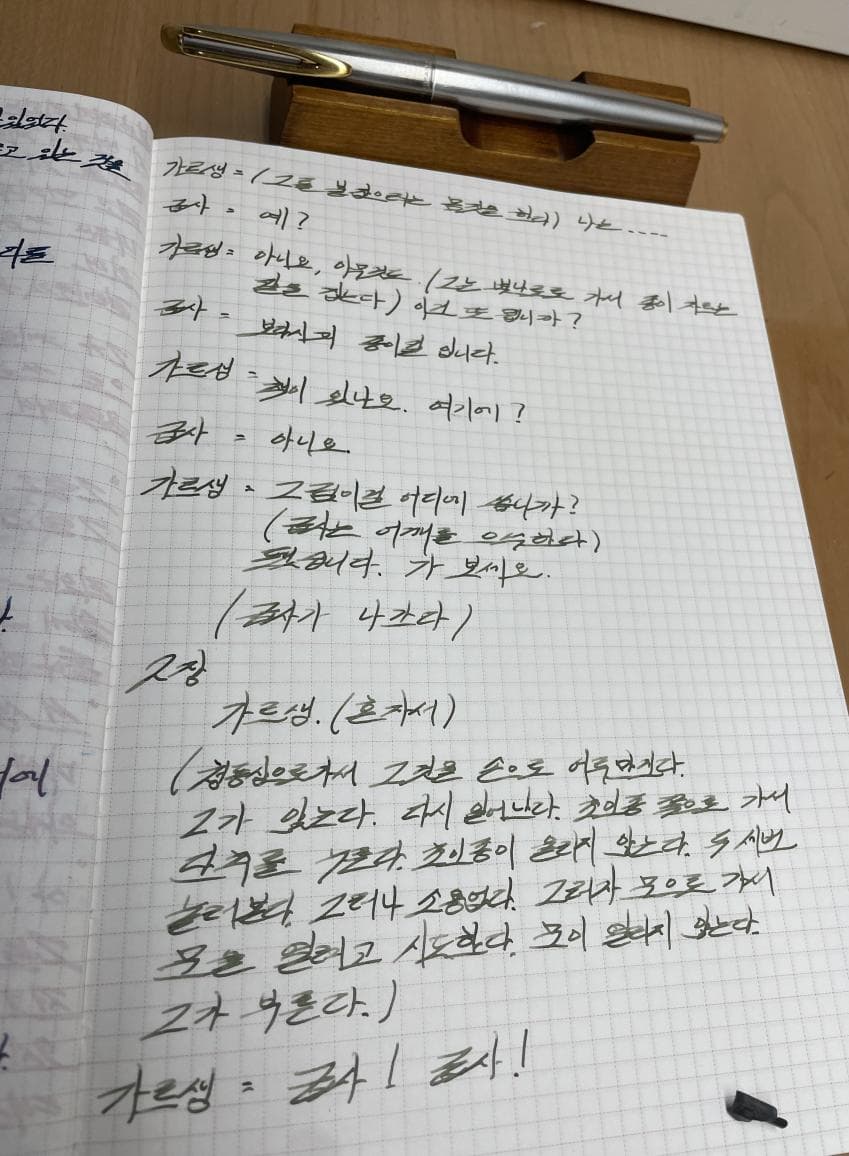 었었다.
고 있는 것을
리를
에
가르생 = (그를 붙잡으려는 몸짓을 한다) 나는 ....
급사 = 예?
가르생 = 아니오, 아무것도 (그는 벽난로로 가서 종이 자르는
칼을 집는다) 이건 또 뭡니까?
급사 = 보다시피 종이칼 입니다.
가르생 = 책이 있나요. 여기에?
급사 = 아니요
가르생 = 그럼 이걸 어디에 씁니까?
(급사는 어깨를 으쓱한다)
됐습니다. 가 보세요.
(급사가 나간다)
2장
가르생. (혼자서)
(청동상으로 가서 그것을 손으로 어루만지다.
그가 앉는다. 다시 일어난다. 초인종 쪽으로 가서
단추를 누른다. 초인종이 울리지 않는다. 두 세번
눌러본다. 그러나 소용없다. 그러자 문으로 가서
문을 열려고 시도한다. 문이 열리지 않는다.
그가 부른다.)
가르생 = 급사! 급사!